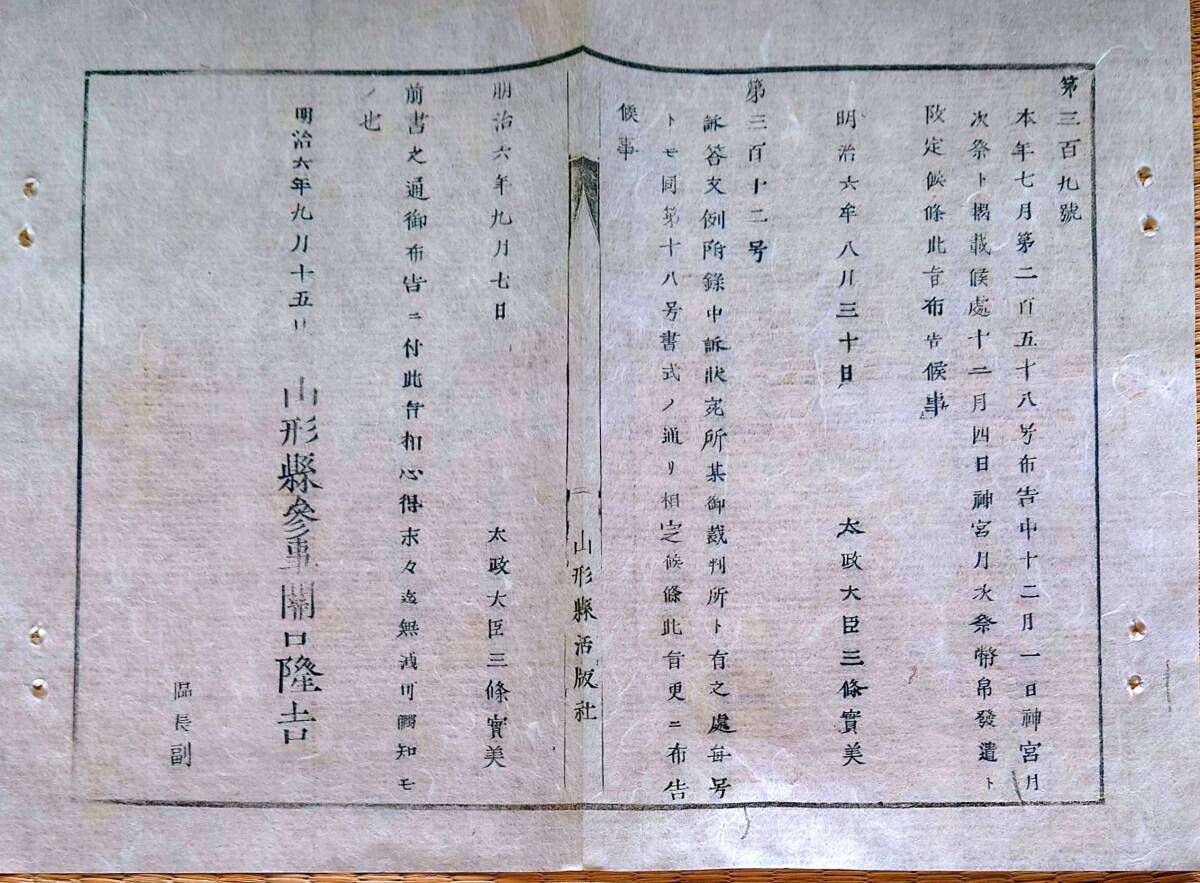 第三百九號
本年七月第二百五十八号布告中十二月一日神宮月
次祭ト揭載候處十二月四日神宮月次祭幣帛發遣ト
改定候條此旨布告候事
明治六年八月三十日
太政大臣三條實美
第三百十二号
訴答文例附錄中訴狀宛所某御裁判所ト有之處每号
トモ同第十八号書式ノ通リ相定候條此旨更ニ布告
候事
山形縣活版社
明治六年九月七日
太政大臣三條實美
前書之通御布告ニ付此旨相心得末々迄無洩可觸知モ
ノ也
明治六年九月十五日
山形縣參事關口隆吉
區長副